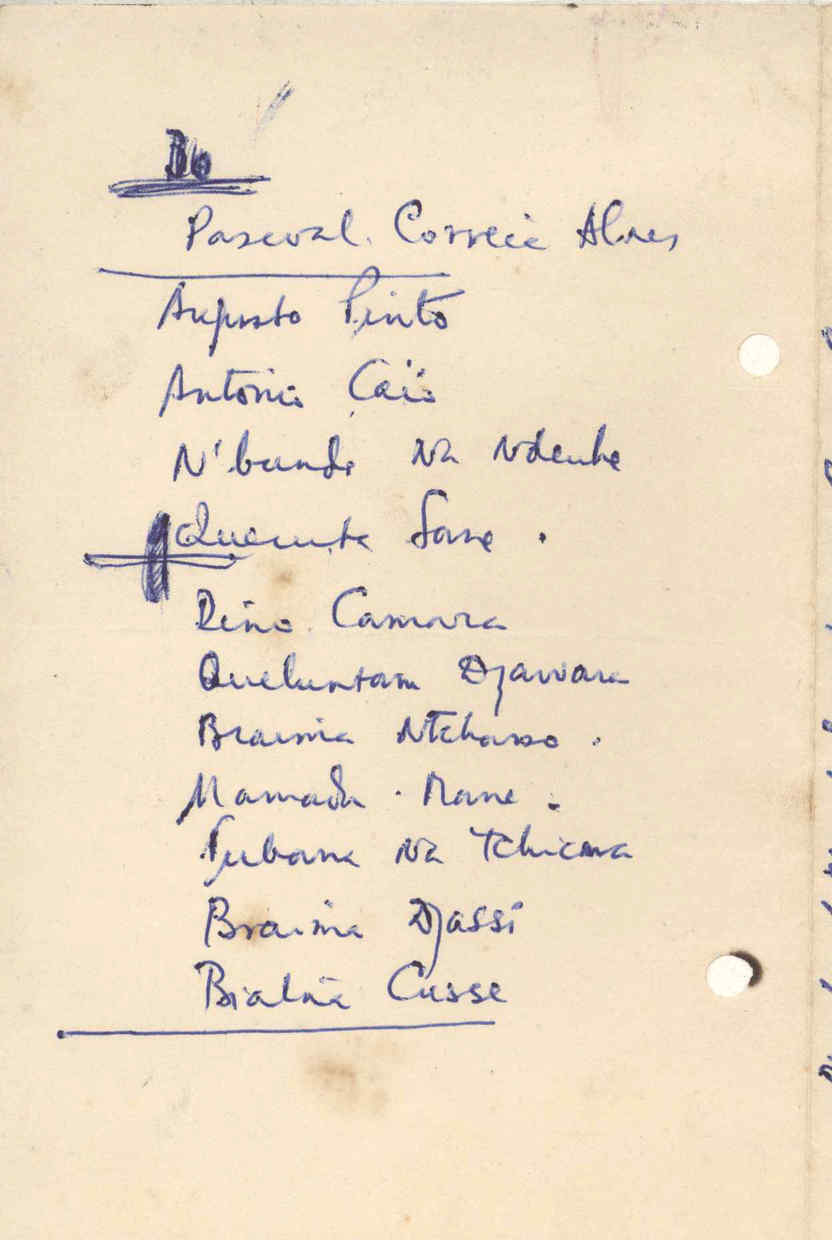 Bo
Pascoal Correia Alves
Augusto Pinto
Antonio Caiò
N'bunde Na Ndenhe
Quecuta Sane.
Dino Camara
Queluntam Djawara
Braima Ntchasso.
Mamadu Mane.
Fubana Na Tchicma
Braima Djassi
Bialnã Cusse